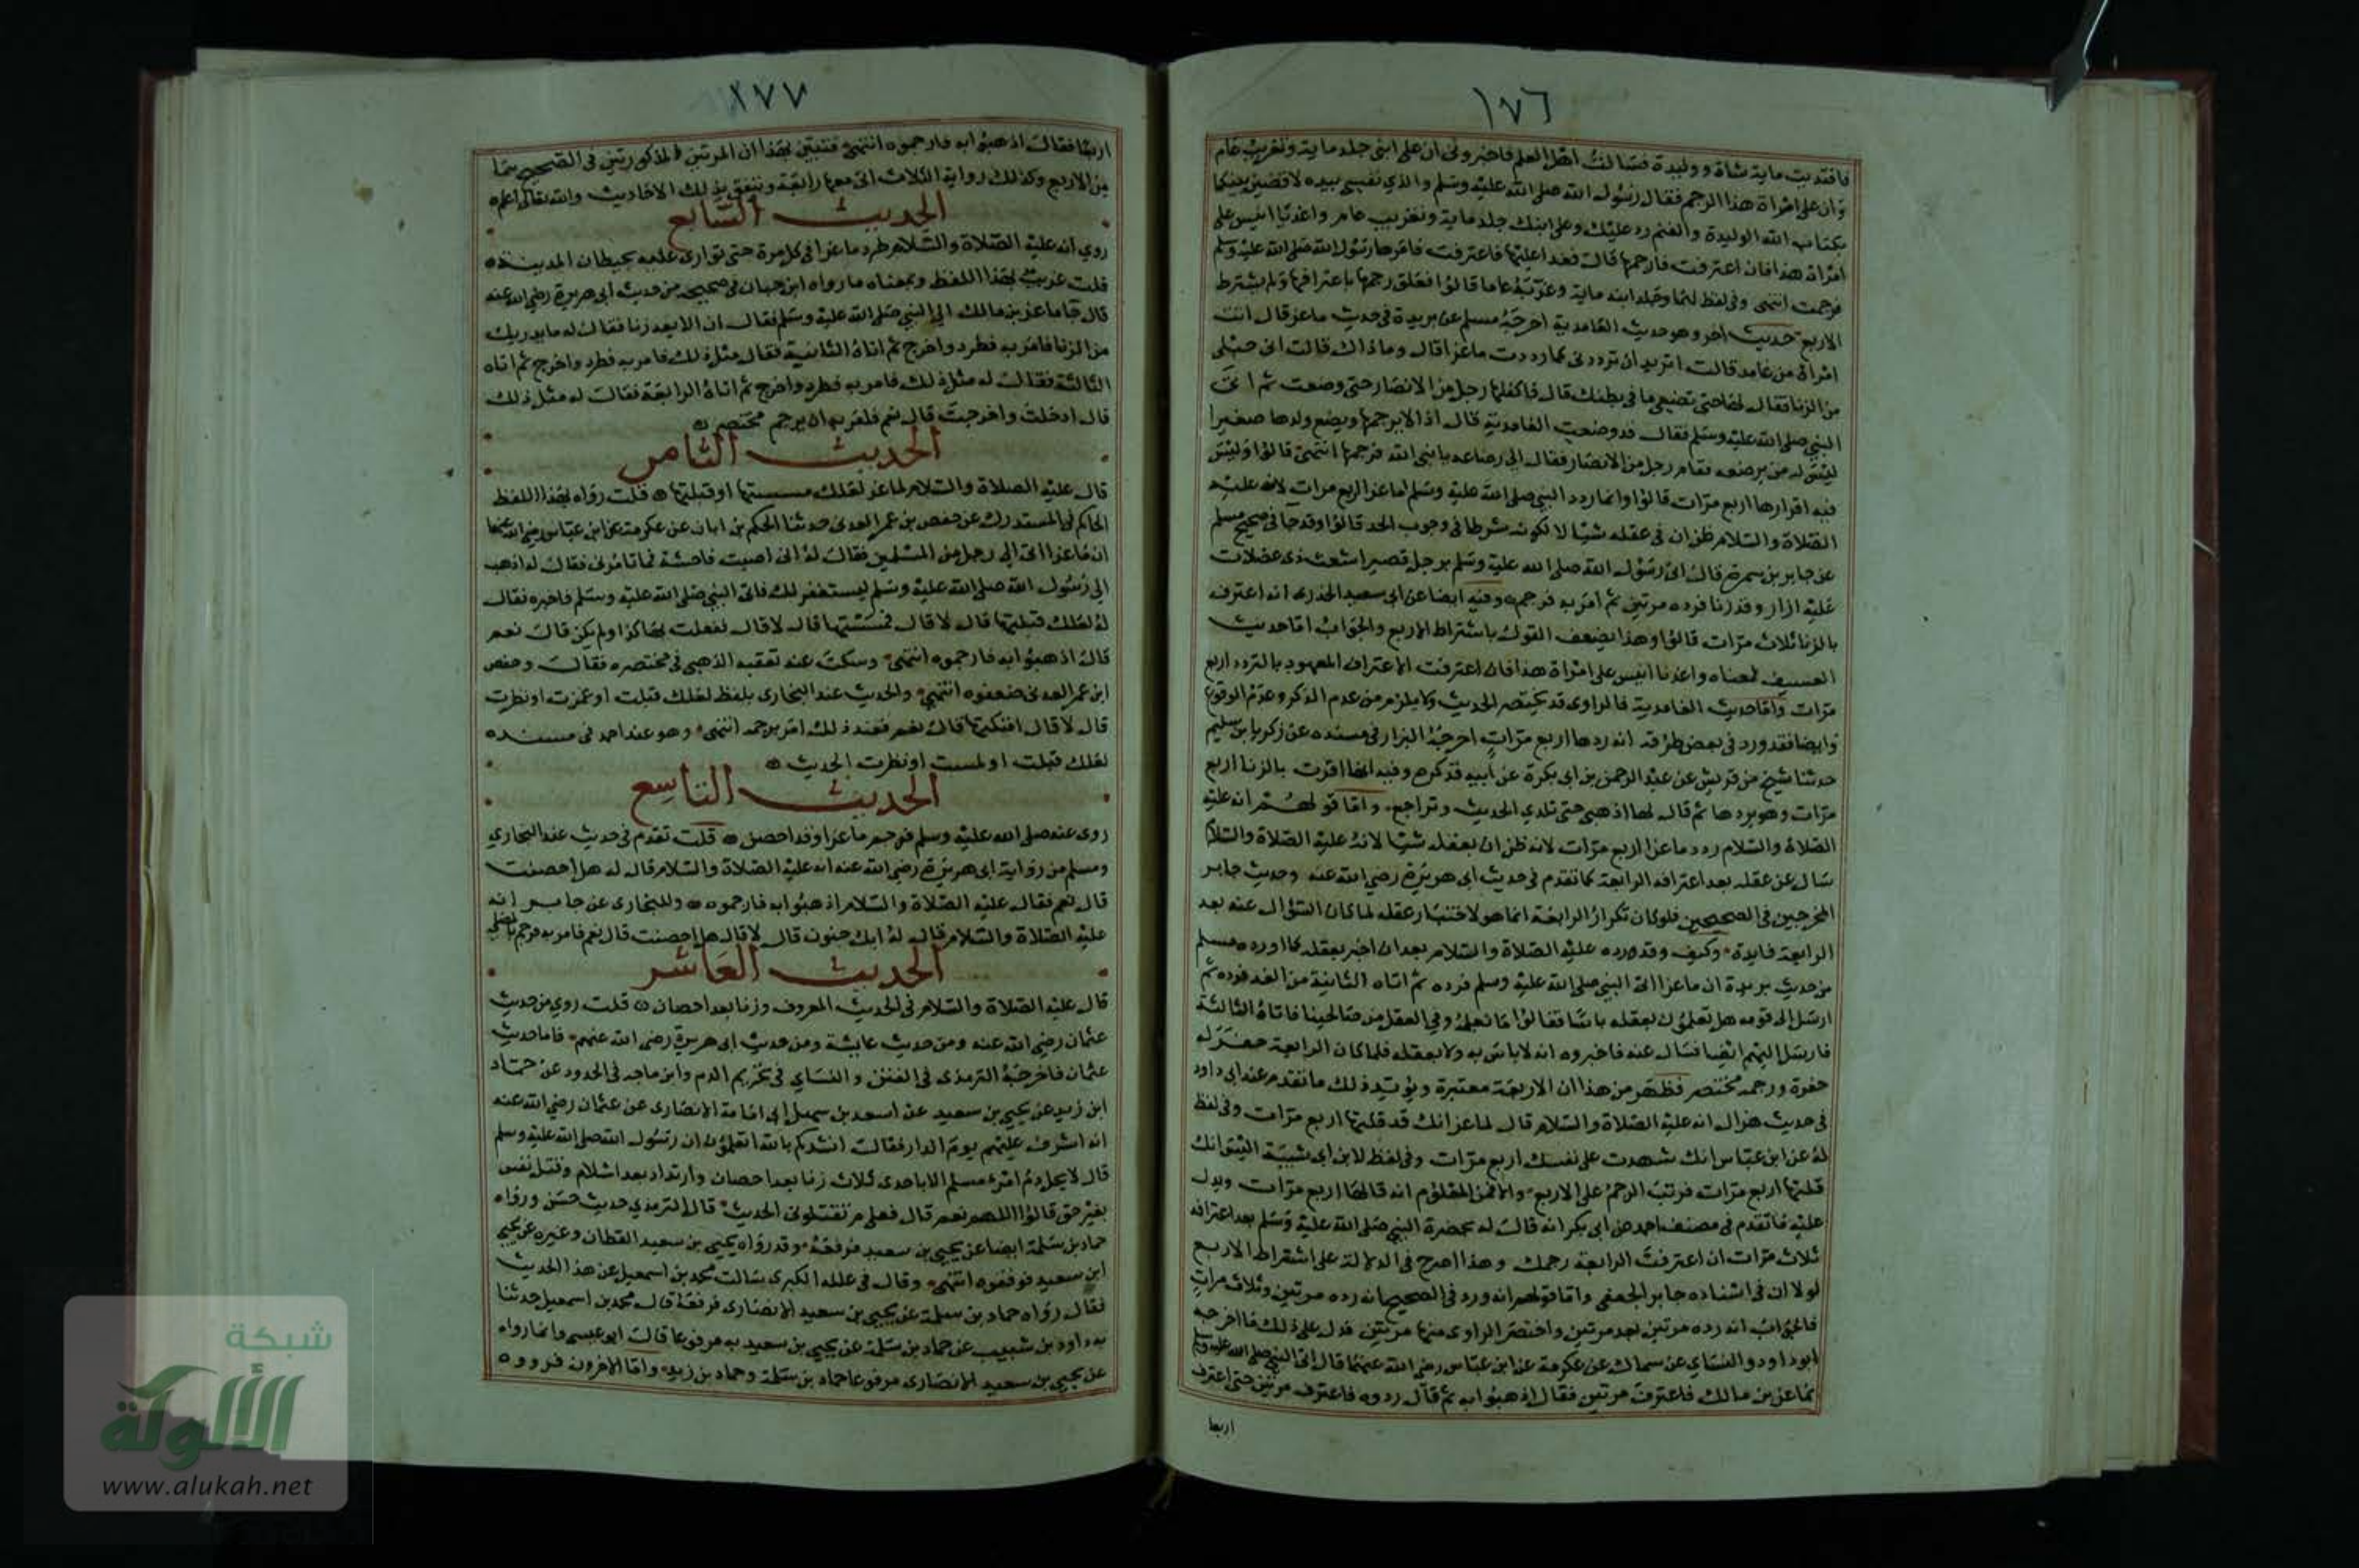 ١٧٦
فافتديت ماية شاة ووليدة فسالت اهل العلم فاخبروني ان على ابني جلد ماية وتغريب عام
وان على امراة هذا الرجم فقال رسول الله صلى الله عليه وسلم والذي نفسي بيده لاقضين بينكما
بكتاب الله الوليدة والغنم رد عليك وعلى ابنك جلد ماية وتغريب عام واغد يا انيس على
امراة هذا فان اعترفت فارجمها قال فغدا عليها فاعترفت فامر بها رسول الله صلى الله عليه وسلم
فرجمت انتهى وفي لفظ لهما وجلد ابنه ماية وغربه عاما قالوا فعلق رجمها باعترافها ولم يشترط
الاربع حديث اخر وهو حديث الغامدية اخرجه مسلم عن بريدة في حديث ماعز قال اتت
امراة من غامد قالت اتريد ان ترددني كما رددت ماعزا قال وما ذاك قالت اني حبلى
من الزنا فقال لها حتى تضعي ما في بطنك قال فكفلها رجل من الانصار حتى وضعت ثم اتى
النبي صلى الله عليه وسلم فقال قد وضعت الغامدية قال اذا لا نرجمها ويضع ولدها صغيرا
ليس له من يرضعه فقام رجل من الانصار فقال الي رضاعه يا نبي الله فرجمها انتهى قالوا وليس
فيه اقرارها اربع مرات قالوا وانما ردد النبي صلى الله عليه وسلم ماعزا اربع مرات لانه عليه
الصلاة والسلام ظن ان في عقله شيا لا لكونه شرطا في وجوب الحد قالوا وقد جا في صحيح مسلم
عن جابر بن سمرة قال اتى رسول الله صلى الله عليه وسلم برجل قصير اشعث ذي عضلات
عليه ازار وقد زنا فرده مرتين ثم امر به فرجم وفيه ايضا عن ابي سعيد الخدري انه اعترف
بالزنا ثلاث مرات قالوا وهذا يضعف القول باشتراط الاربع والجواب اما حديث
العسيف فمعناه واغد يا انيس على امراة هذا فان اعترفت الاعتراف المعهود بالتردد اربع
مرات واما حديث الغامدية فالراوي قد يختصر الحديث ولا يلزم من عدم الذكر وعدم الوقوع
وايضا فقد ورد في بعض طرقه انه ردها اربع مرات اخرجه البزار في مسنده عن زكريا بن سليم
حدثنا شيخ من قريش عن عبد الرحمن بن ابي بكرة عن ابيه فذكره وفيه انها اقرت بالزنا اربع
مرات وهو يردها ثم قال لها اذهبي حتى تلدي الحديث وتراجع واما قولهم انه عليه
الصلاة والسلام ردد ماعزا اربع مرات لانه ظن ان بعقله شيا لانه عليه الصلاة والسلام
سال عن عقله بعد اعترافه الرابعة كما تقدم في حديث ابي هريرة رضي الله عنه وحديث جابر
المخرجين في الصحيحين فلو كان تكرار الرابعة انما هو لاختبار عقله لما كان السؤال عنه بعد
الرابعة فايدة وكيف وقد ورده عليه الصلاة والسلام بعد ان اخبر بعقله كما اورده مسلم
من حديث بريدة ان ماعزا اتى النبي صلى الله عليه وسلم فرده ثم اتاه الثانية من الغد فرده ثم
ارسل الى قومه هل تعلمون بعقله باسا فقالوا ما نعلمه وفي العقل من صالحينا فاتاه الثالثة
فارسل اليهم ايضا فسال عنه فاخبروه انه لا باس به ولا بعقله فلما كان الرابعة حفر له
حفرة ورجمه مختصر فظهر من هذا ان الاربعة معتبرة ويؤيد ذلك ما تقدم عند ابي داود
في حديث هزال انه عليه الصلاة والسلام قال لماعز انك قد قلتها اربع مرات وفي لفظ
له عن ابن عباس انك شهدت على نفسك اربع مرات وفي لفظ لابن ابي شيبة اليس انك
قلتها اربع مرات فرتب الرجم على الاربع انه قالها اربع مرات ويدل
عليه ما تقدم في مصنف احمد عن ابي بكر انه قال له بحضرة النبي صلى الله عليه وسلم بعد اعترافه
ثلاث مرات ان اعترفت الرابعة رجمك وهذا اصرح في الدلالة على اشتراط الاربع
لولا ان في اسناده جابر الجعفي واما قولهم انه ورد في الصحيح انه رده مرتين وثلاث مرات
فالجواب انه رده مرتين بعد مرتين واختصر الراوي منها مرتين فدل على ذلك ما اخرجه
ابو داود والنساي عن سماك عن عكرمة عن ابن عباس رضي الله عنهما قال اتى النبي صلى الله عليه وسلم
ماعز بن مالك فاعترف مرتين فقال اذهبوا به ثم قال ردوه فاعترف مرتين حتى اعترف
اربعا
١٧٧
اربعا فقال اذهبوا به فارجموه انتهى فتبين بهذا ان المرتين المذكورتين في الصحيح هما
من الاربع وكذلك رواية الثلاث اي معها رابعة وتتفق بذلك الاحاديث والله تعالى اعلم
الحديث السابع
روي انه عليه الصلاة والسلام طرد ماعزا في كل مرة حتى توارى عنه بحيطان المدينة
قلت غريب بهذا اللفظ وبمعناه ما رواه ابن حبان في صحيحه من حديث ابي هريرة رضي الله عنه
قال جا ماعز بن مالك الى النبي صلى الله عليه وسلم فقال ان الابعد زنا فقال له ما يدريك
ما الزنا فامر به فطرد واخرج ثم اتاه الثانية فقال مثل ذلك فامر به فطرد واخرج ثم اتاه
الثالثة فقال له مثل ذلك فامر به فطرد واخرج ثم اتاه الرابعة فقال له مثل ذلك
قال ادخلت واخرجت قال نعم فامر به ان يرجم مختصر
الحديث الثامن
قال عليه الصلاة والسلام لماعز لعلك مسستها او قبلتها قلت رواه بهذا اللفظ
الحاكم في المستدرك عن حفص بن عمر العدني حدثنا الحكم بن ابان عن عكرمة عن ابن عباس رضي الله عنهما
ان ماعزا اتى الى رجل من المسلمين فقال له اني اصبت فاحشة فما تامرني فقال له اذهب
الى رسول الله صلى الله عليه وسلم ليستغفر لك فاتى النبي صلى الله عليه وسلم فاخبره فقال
له لعلك قبلتها قال لا قال فمسستها قال لا قال ففعلت بها كذا ولم يكن قال نعم
قال اذهبوا به فارجموه انتهى وسكت عنه تعقبه الذهبي في مختصره فقال وحفص
ابن عمر العدني ضعفوه انتهى والحديث عند البخاري بلفظ لعلك قبلت او غمزت او نظرت
قال لا قال افنكتها قال نعم فعند ذلك امر برجمه انتهى وهو عند احمد في مسنده
لعلك قبلت او لمست او نظرت الحديث
الحديث التاسع
روى عنه صلى الله عليه وسلم فرجم ماعزا وقد احصن قلت تقدم في حديث عند البخاري
ومسلم من رواية ابي هريرة رضي الله عنه انه عليه الصلاة والسلام قال له هل احصنت
قال نعم فقال عليه الصلاة والسلام اذهبوا به فارجموه وللبخاري عن جابر انه
عليه الصلاة والسلام قال له ابك جنون قال لا قال هل احصنت قال نعم فامر به فرجم بالمصلى
الحديث العاشر
قال عليه الصلاة والسلام في الحديث المعروف وزنا بعد احصان قلت روي من حديث
عثمان رضي الله عنه ومن حديث عايشة ومن حديث ابي هريرة رضي الله عنهم فاما حديث
عثمان فاخرجه الترمذي في الفتن والنساي في تحريم الدم وابن ماجه في الحدود عن حماد
ابن زيد عن يحيى بن سعيد عن اسعد بن سهيل ابي امامة الانصاري عن عثمان رضي الله عنه
انه اشرف عليهم يوم الدار فقال انشدكم بالله اتعلمون ان رسول الله صلى الله عليه وسلم
قال لا يحل دم امرء مسلم الا باحدى ثلاث زنا بعد احصان وارتداد بعد اسلام وقتل نفس
بغير حق قالوا اللهم نعم قال فعلى م تقتلوني الحديث قال الترمذي حديث حسن ورواه
حماد بن سلمة ايضا عن يحيى بن سعيد فرفعه وقد رواه يحيى بن سعيد القطان وغيره عن يحيى
ابن سعيد فوقفوه انتهى وقال في علله الكبرى سالت محمد بن اسمعيل عن هذا الحديث
فقال رواه حماد بن سلمة عن يحيى بن سعيد الانصاري فرفعه قال محمد بن اسمعيل حدثنا
به داود بن شبيب عن حماد بن سلمة عن يحيى بن سعيد به مرفوعا قال ابو عيسى وانما رواه
عن يحيى بن سعيد الانصاري مرفوعا حماد بن سلمة وحماد بن زيد واما الاخرون فرووه
شبكة
الألوكة
www.alukah.net